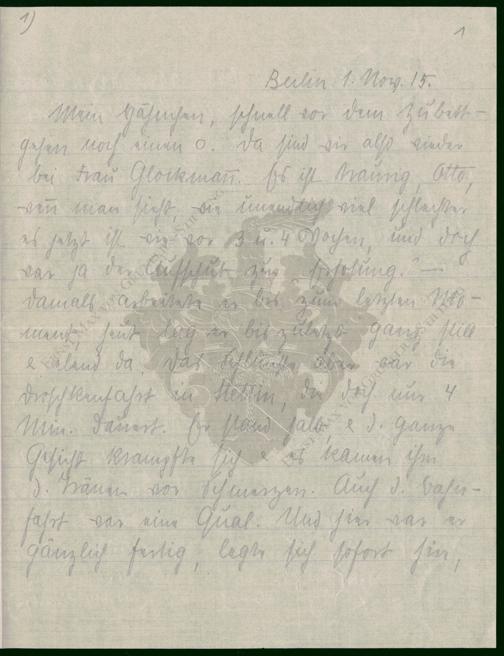 1)
1
Berlin 1. Nov. 15.
Mein Hähnchen, schnell vor dem Zubett-
gehen noch einen o. Da sind wir also wieder
bei Frau Glockmann. Es ist traurig, Otto,
wenn man sieht, wie unendlich viel schlechter
es jetzt ist wie vor 3 u. 4 Wochen, und doch
war ja der Aufschub zur "Erholung." —
Damals arbeitete er bis zum letzten Mo-
ment, heut lag er bis zuletzt ganz still
& elend da. Das Schlimmste aber war die
Droschkenfahrt in Stettin, die doch nur 4
Min. dauert. Er stand halb, & d. ganze
Gesicht krampfte sich & es kamen ihm
d. Tränen vor Schmerzen. Auch d. Bahn-
fahrt war eine Qual. Und hier war er
gänzlich fertig, legte sich sofort hin,